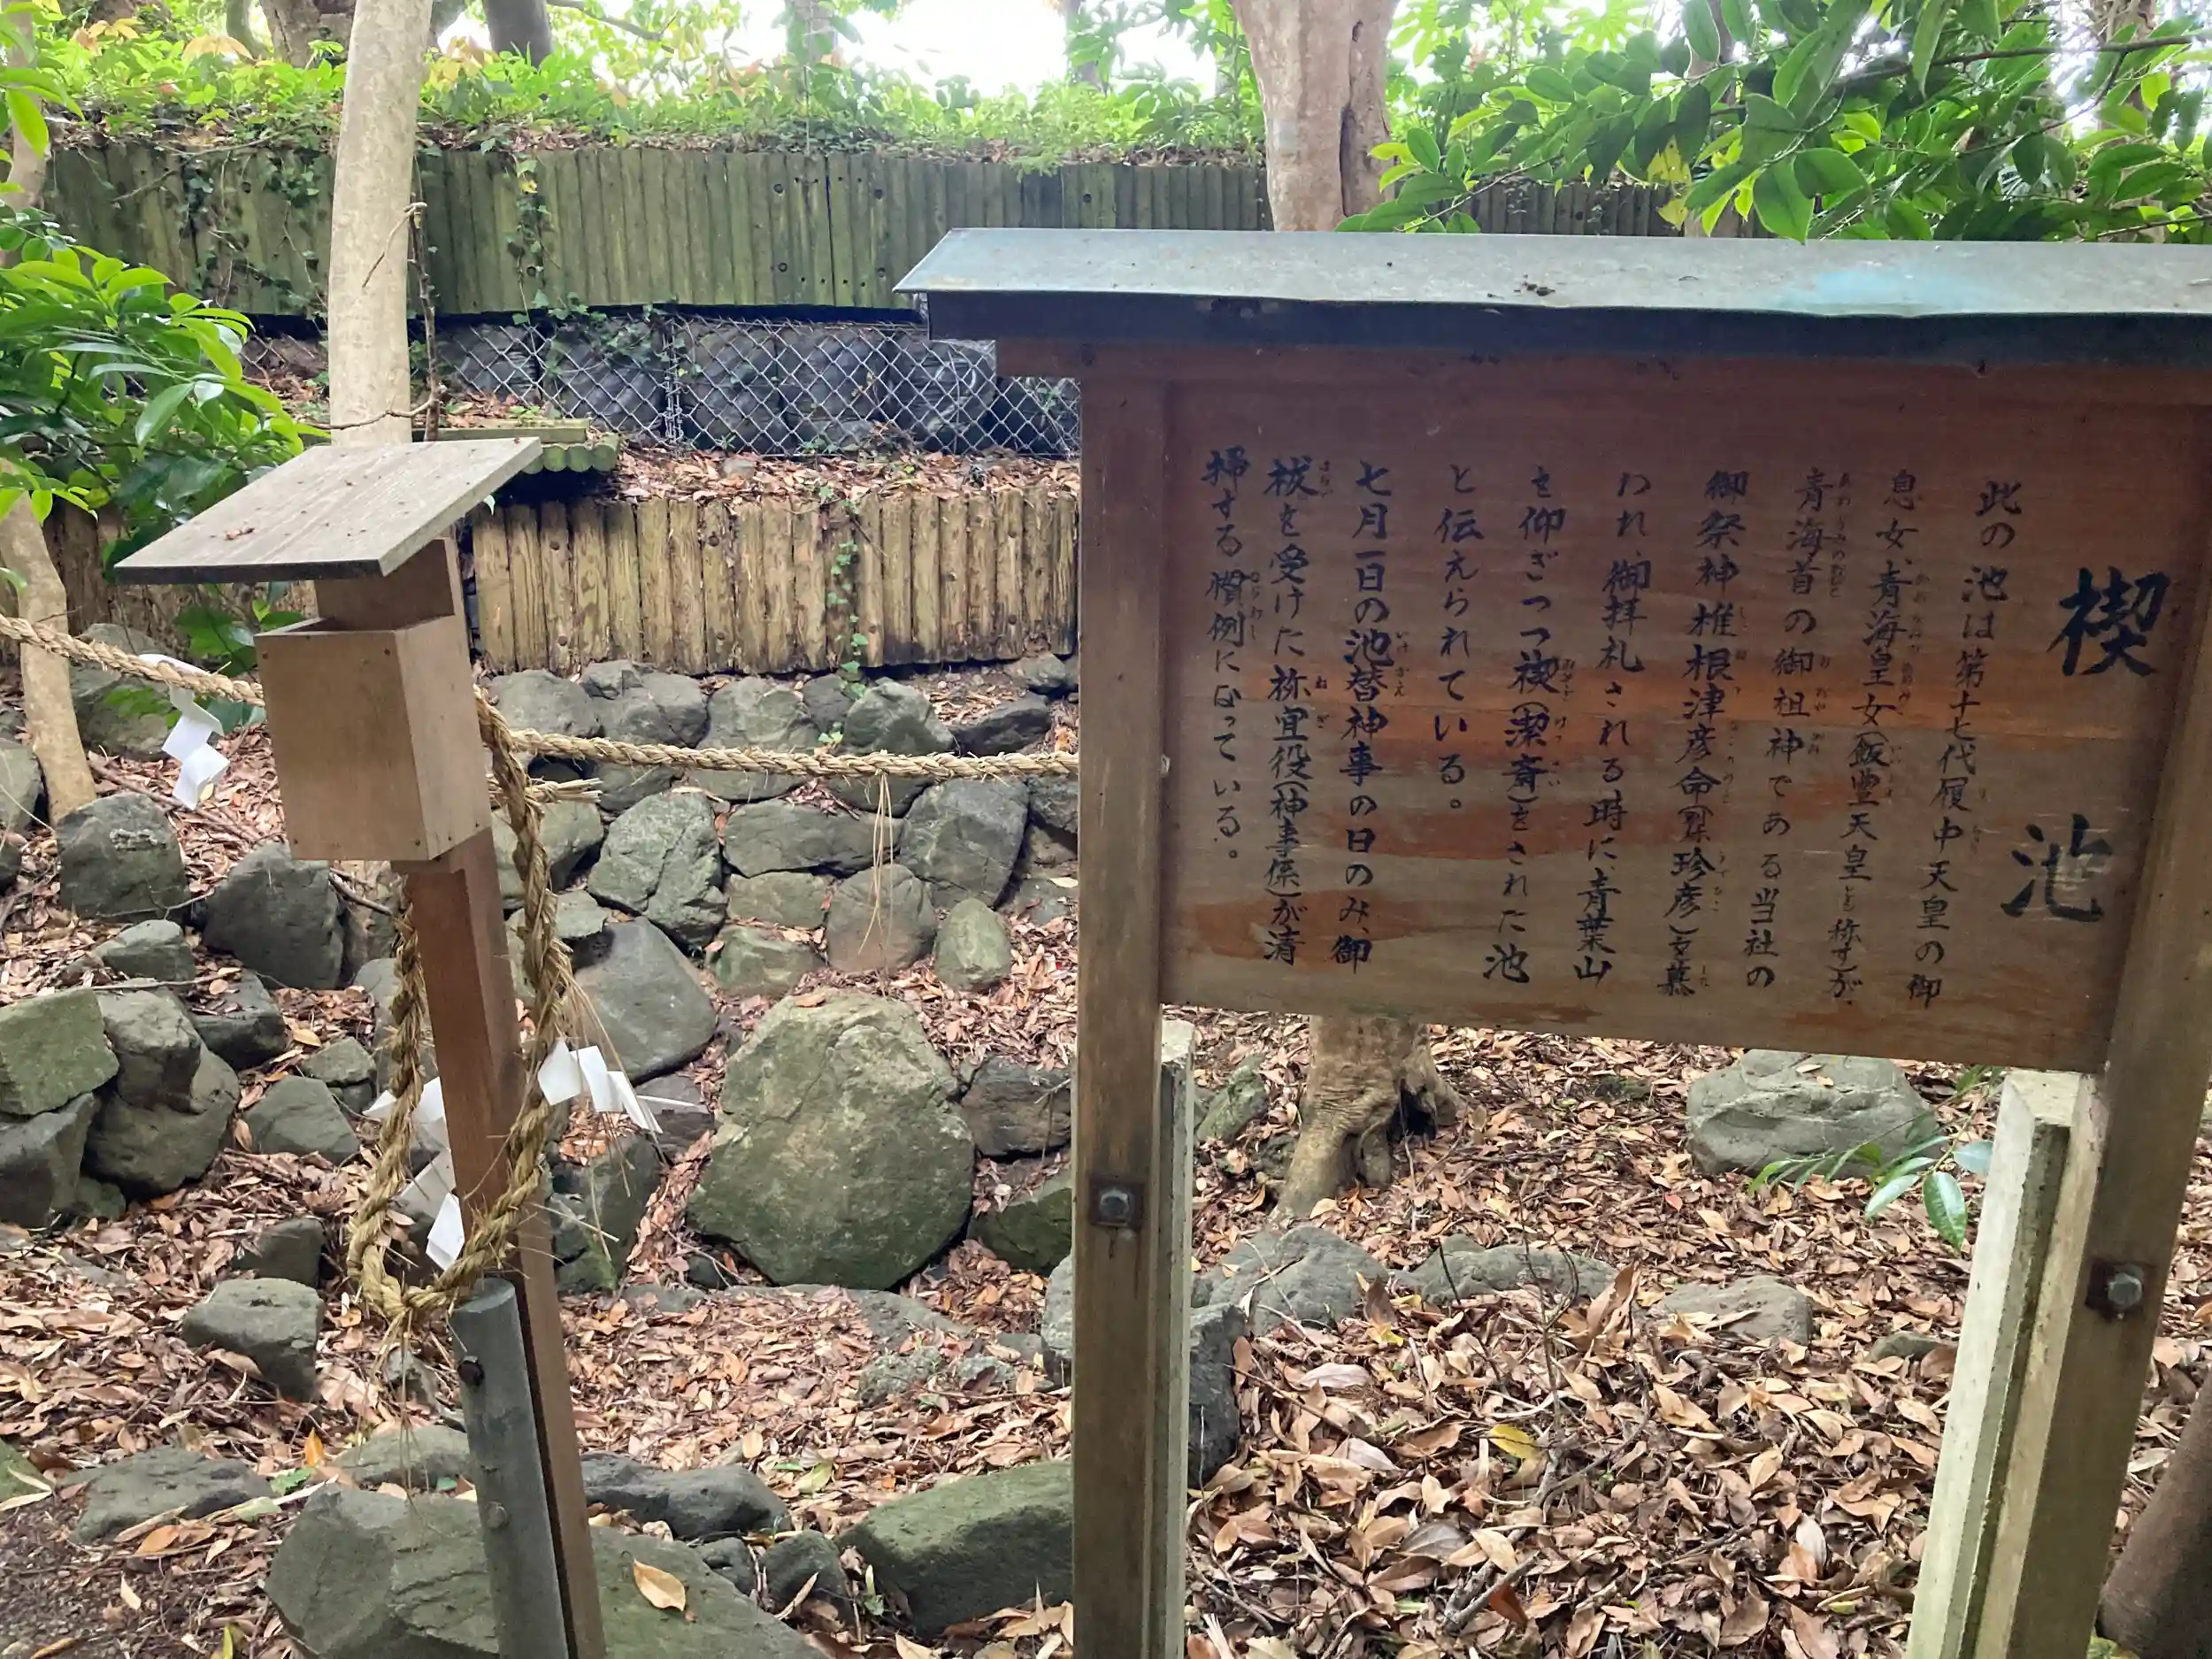 禊池
此の池は第十七代履中天皇の御
息女、青海皇女(飯豊天皇とも称す)が、
青海首の御祖神である当社の
御祭神椎根津彦命(槁根珍彦)を慕
われ、御拝礼される時に、青葉山
を仰ぎつつ禊(潔斎)をされた池
と伝えられている。
七月一日の池替神事の日のみ、御
祓を受けた祢宜役(神事係)が清
掃する慣例になっている。